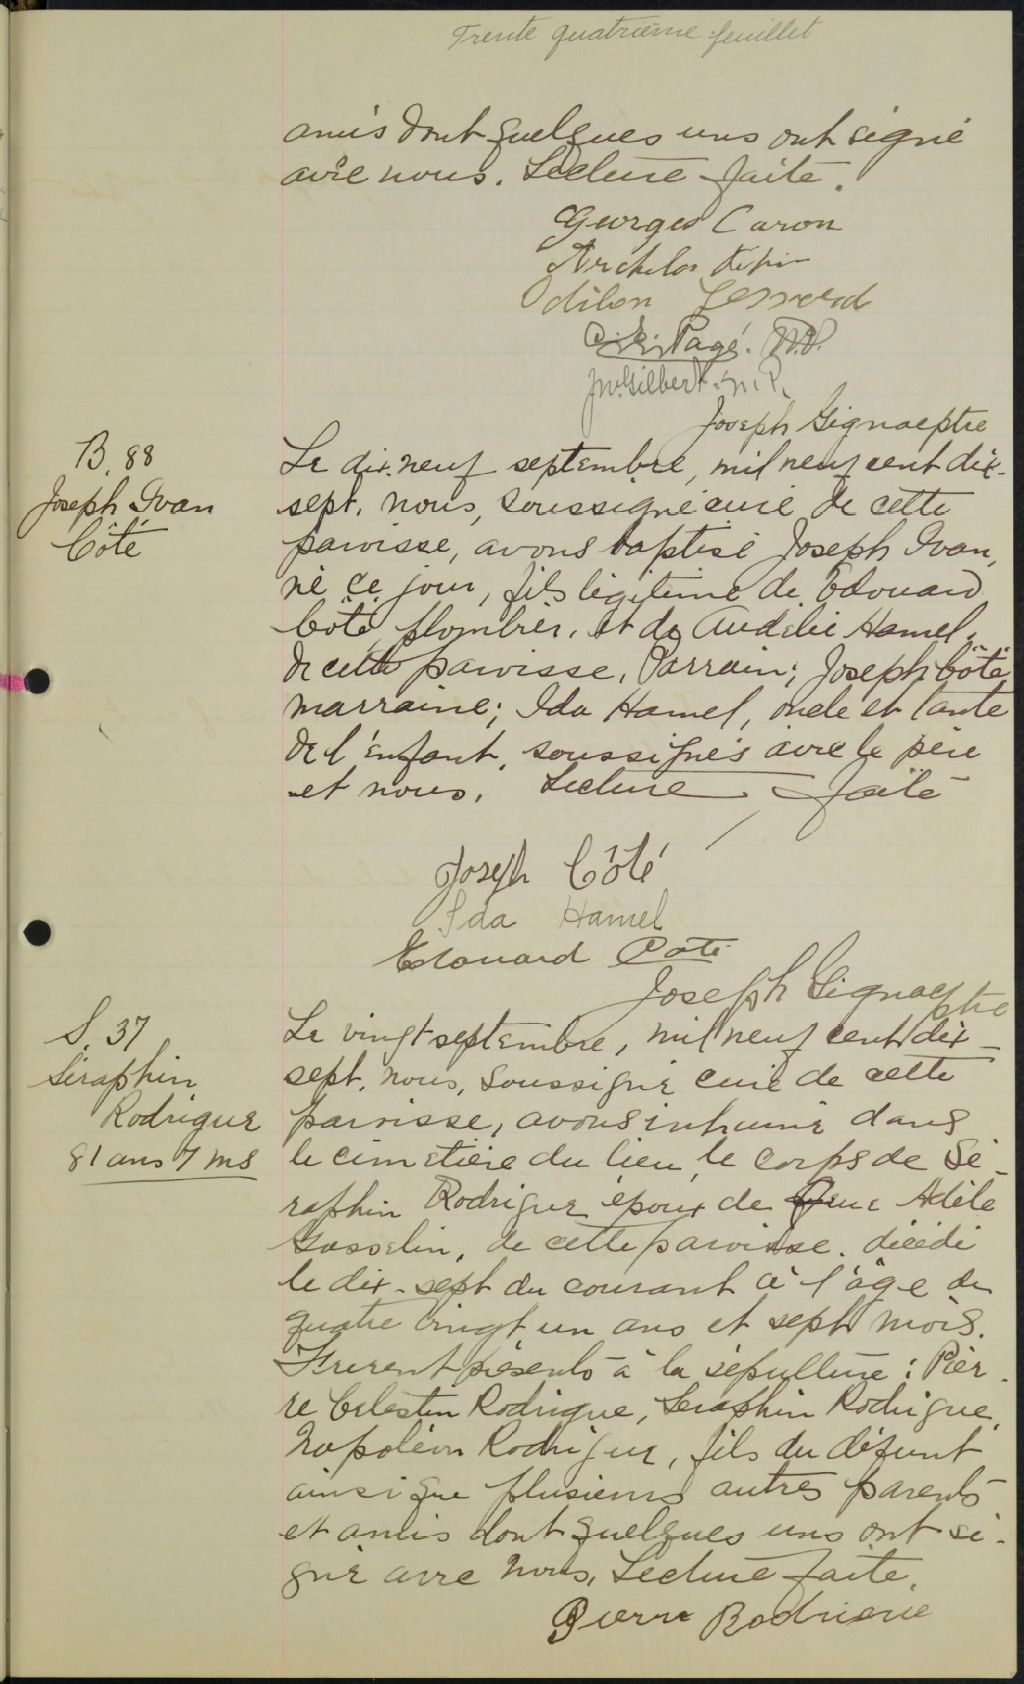 Trente quatrième feuillet
amis dont quelques uns ont signé
avec nous. Lecture faite.
Georges Caron
Odilon
Pagé. N.P.
J.W. Gilbert. N.P.
Joseph Gignac ptre
B. 88
Joseph Ivan
Côté
Le dix-neuf septembre, mil neuf cent dix-
sept, nous, soussigné curé de cette
paroisse, avons baptisé Joseph Ivan,
né ce jour, fils légitime de Edouard
Côté, plombier, et de Audélie Hamel,
de cette paroisse. Parrain; Joseph Côté,
marraine; Ida Hamel, oncle et tante
de l'enfant, soussignés avec le père
et nous. Lecture faite
Joseph Côté
Ida Hamel
Edouard Coté
Joseph Gignac ptre
S. 37
Séraphin
Rodrigue
81 ans 7 ms
Le vingt septembre, mil neuf cent dix-
sept, nous, soussigné curé de cette
paroisse, avons inhumé dans
le cimetière du lieu le corps de Sé-
raphin Rodrigue époux de feue Adèle
Gosselin, de cette paroisse, décédé
le dix-sept du courant à l'âge de
quatre vingt un ans et sept mois.
Furent présents à la sépulture: Pier-
re Celestin Rodrigue, Seraphin Rodrigue,
Napoléon Rodrigue, fils du défunt
ainsi que plusieurs autres parents
et amis dont quelques uns ont si-
gné avec nous. Lecture faite.
Pierre Rodrigue